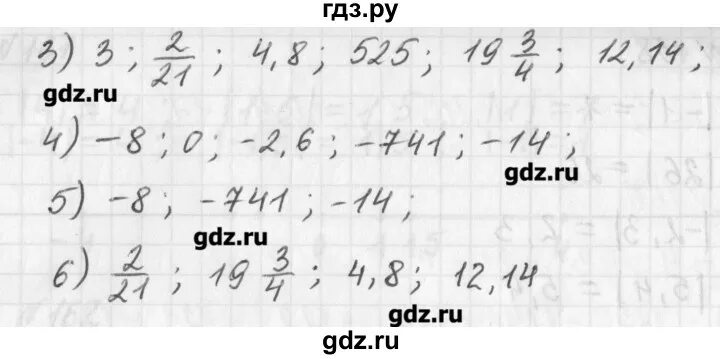 гдз.ру
3) 3; 2/21; 4,8; 525; 19 3/4; 12,14;
gdz.ru
4) -8; 0; -2,6; -741; -14;
gdz.ru
5) -8; -741; -14;
gdz.ru
6) 2/21; 19 3/4; 4,8; 12,14
gdz.ru
gdz.ru